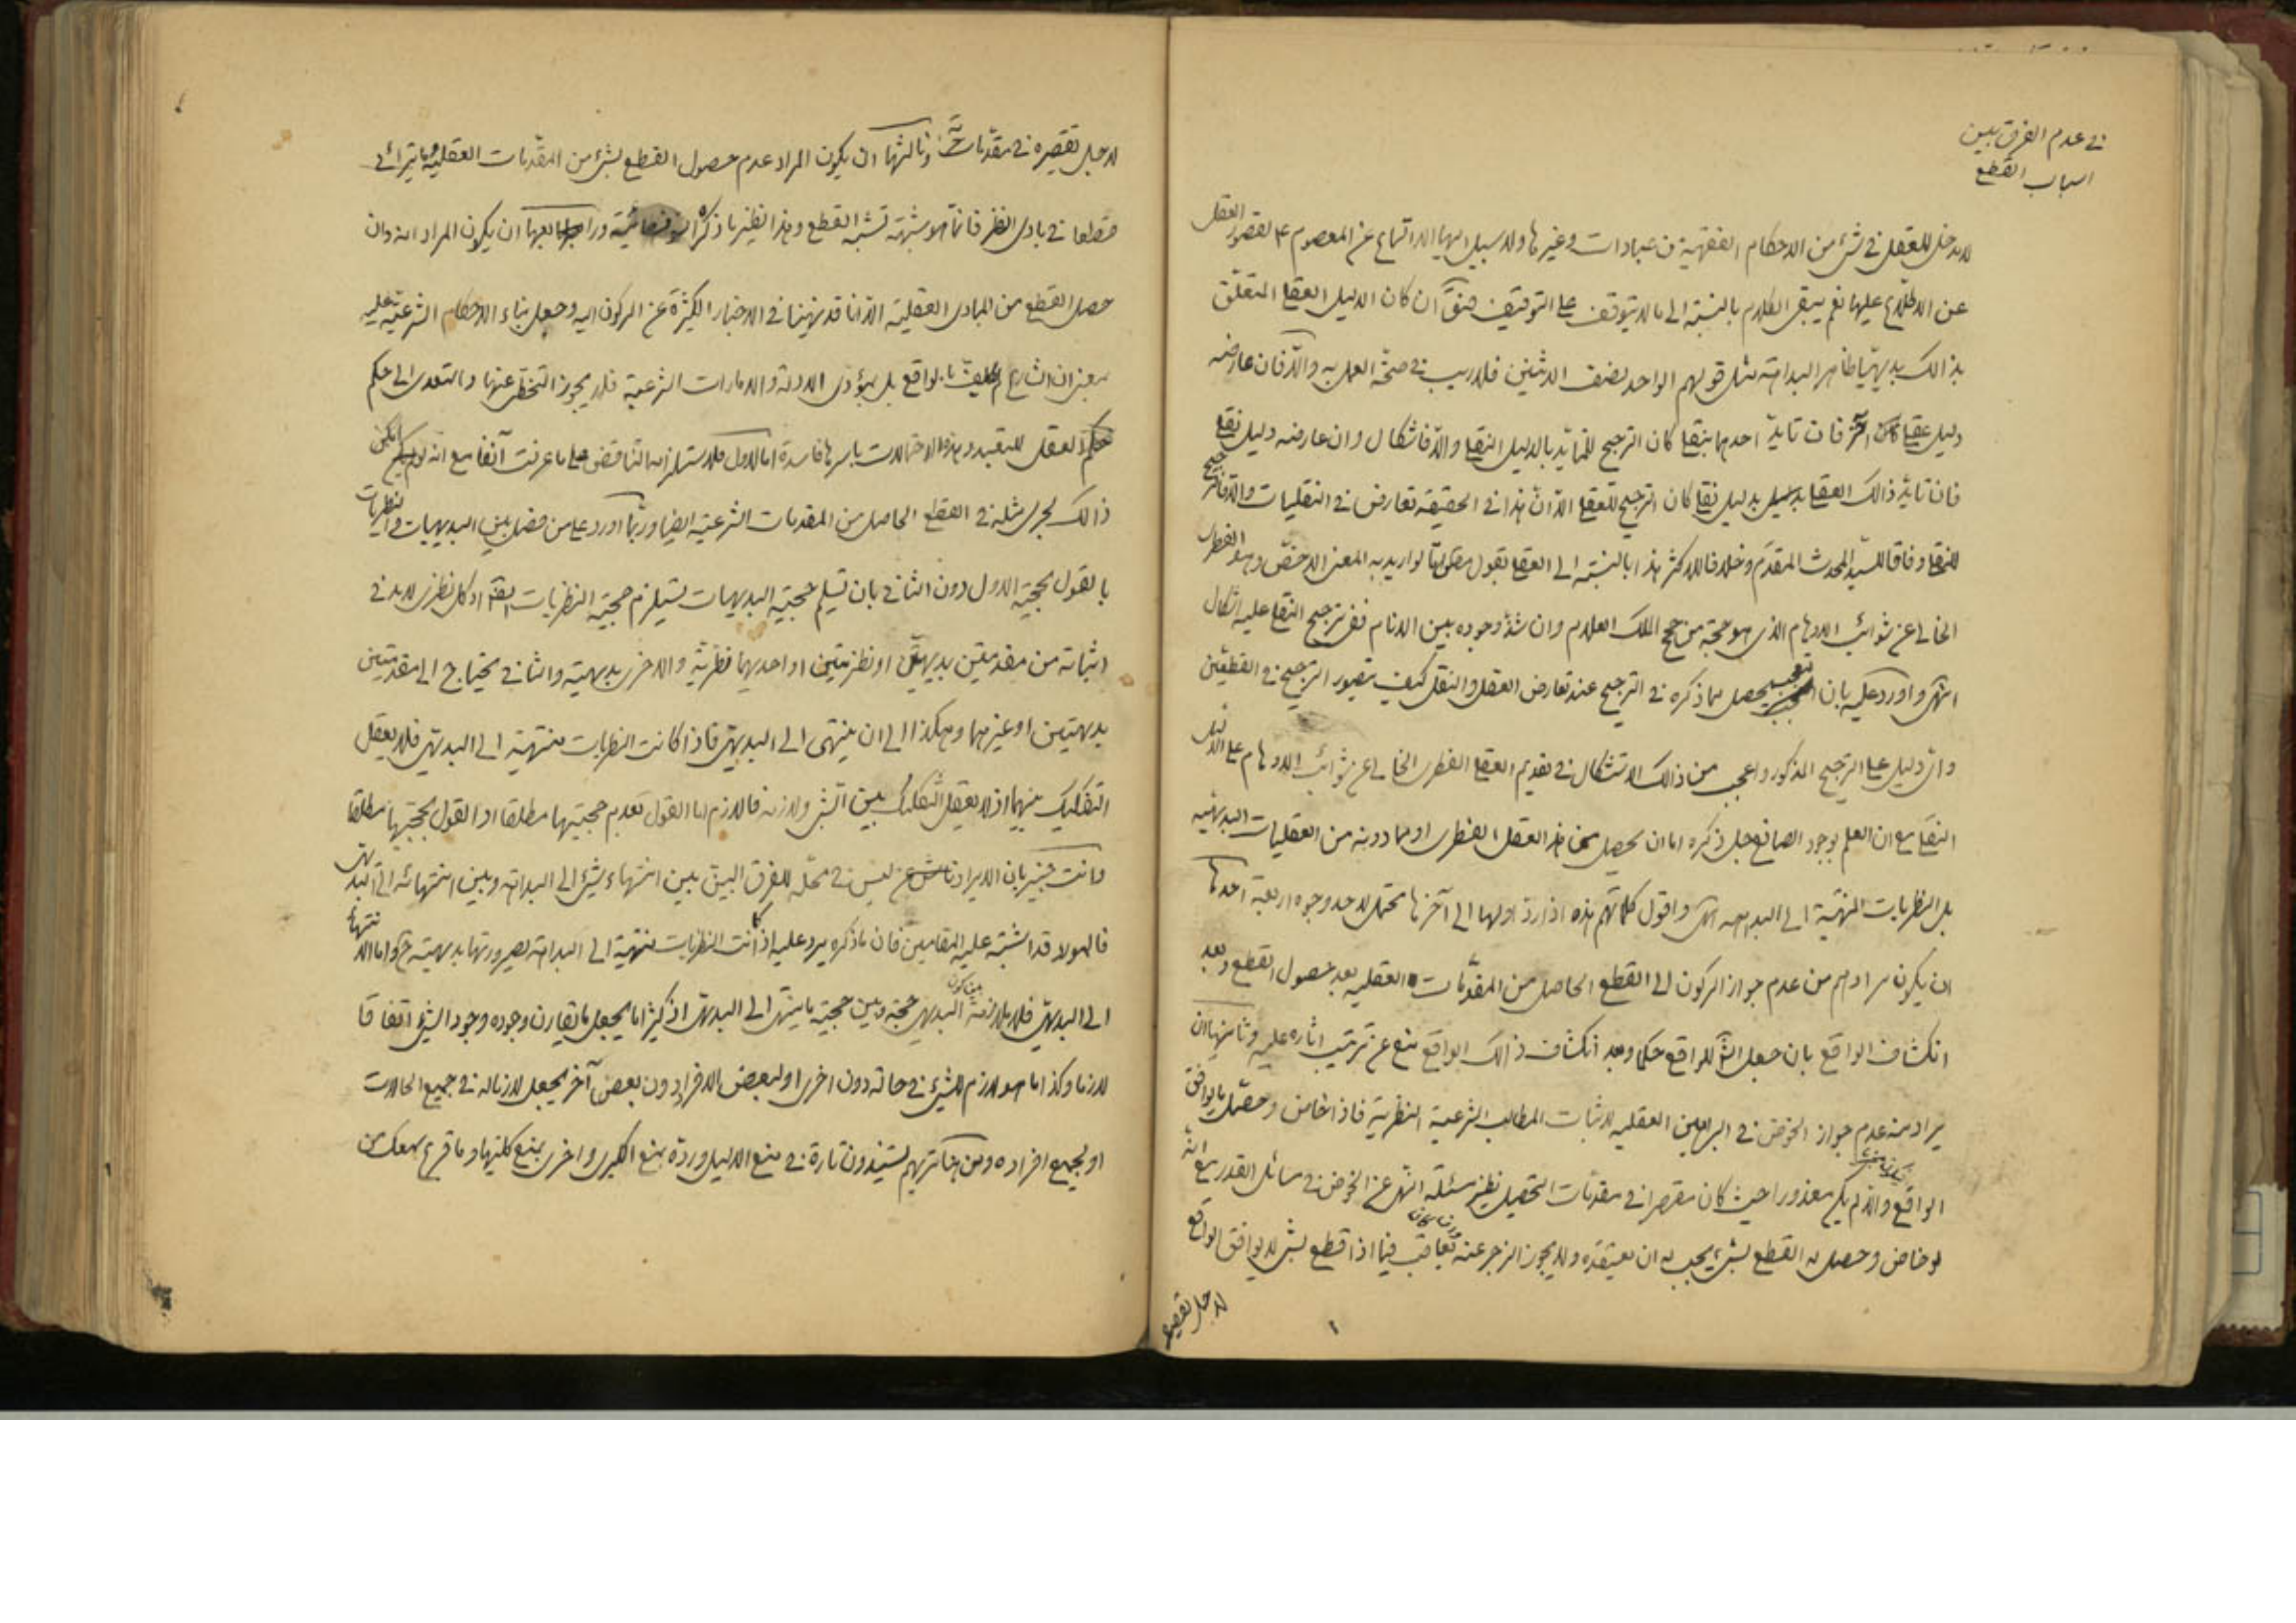 في عدم الفرق بين
اسباب القطع
لا مدخل للعقل في شئ من الاحكام الفقهية من عبادات وغيرها ولا سبيل اليها الا السماع عن المعصوم ع لقصور العقل
عن الاطلاع عليها نعم يبقى الكلام بالنسبة الى ما لا يتوقف على التوقيف فنقول ان كان الدليل العقلي المتعلق
بذالك بديهيا ظاهر البداهة مثل قولهم الواحد نصف الاثنين فلا ريب في صحة العمل به والا فان عارضه
دليل عقلي آخر فان تايد احدهما بنقلي كان الترجيح للمتايد بالدليل النقلي والا فاشكال وان عارضه دليل نقلي
فان تايد ذالك العقلي بدليل نقلي كان الترجيح للعقلي الا ان هذا في الحقيقة تعارض في النقليات والا فالترجيح
للنقلي وفاقا للسيد المحدث المقدم وخلافا للاكثر هذا بالنسبة الى العقلي بقول مطلق اما لو اريد به المعنى الاخص وهو الفطرى
الخالي عن شوائب الاوهام الذى هو حجة من حجج الملك العلام وان شذ وجوده بين الانام ففي ترجيح النقلي عليه اشكال
انتهى واورد عليه بان التعجب يحصل مما ذكره في الترجيح عند تعارض العقل والنقل كيف يتصور الترجيح في القطعيين
واى دليل على الترجيح المذكور واعجب من ذالك الاستشكال في تقديم العقلي الفطرى الخالي عن شوائب الاوهام على الدليل
النقلي مع ان العلم بوجود الصانع جل ذكره اما ان يحصل من هذا العقل الفطرى او مما دونه من العقليات البديهية
بل النظريات المنتهية الى البداهة انتهى واقول كلماتهم هذه اولها الى آخرها تحتمل لاحد وجوه اربعة احدها
ان يكون مرادهم من عدم جواز الركون الى القطع الحاصل من المقدمات العقليه بعد حصول القطع وبعد
انكشاف الواقع بان جعل للواقع حكما وبعد انكشاف ذالك الواقع منع عن ترتيب اثاره عليه وثانيها ان
يراد منه عدم جواز الخوض في البراهين العقليه لاثبات المطالب الشرعية النظرية فاذا خاض وحصل ما يوافق
الواقع والا لم يكن معذورا حيث كان مقصرا في مقدمات التحصيل نظير مسئلة النهى عن الخوض في مسائل القدر مع انه
لو خاض وحصل له القطع بشئ يجب له ان يعتقده ولا يجوز الزجر عنه يعاقب فيما اذا قطع بشئ لا يوافق الواقع
لاجل تقصيره
لاجل تقصيره في مقدماته وثالثها ان يكون المراد عدم حصول القطع بشئ من المقدمات العقلية وما يترائى
قطعا في بادى النظر فانما هو شبهة تشبه القطع وهذا نظير ما ذكره السوفسطائية ورابعها ان يكون المراد انه وان
حصل القطع من المبادى العقلية الا انا قد نهينا في الاخبار الكثيرة عن الركون اليه وجعل بناء الاحكام الشرعية عليه
بمعنى ان الشارع لم يكلف بالواقع بل بمؤدى الادلة والامارات الشرعية فلا يجوز التخطى عنها والتعدى الى حكم
العقل وهذه الاحتمالات باسرها فاسدة اما الاول فلاستلزامه التناقض على ما عرفت آنفا مع انه لو لم يكن
ذالك لجرى مثله في القطع الحاصل من المقدمات الشرعية ايضا وربما اورد على من فصل بين البديهيات والنظريات
بالقول بحجية الاول دون الثاني بان تسليم حجية البديهيات تستلزم حجية النظريات اذ كل نظرى لا بد في
اثباته من مقدمتين بديهيتين او نظريتين او احديهما نظرية والاخرى بديهية والثاني يحتاج الى مقدمتين
بديهتين او غيرهما وهكذا الى ان ينتهى الى البديهى فاذا كانت النظريات منتهية الى البديهى فلا يعقل
التفكيك بينهما اذ لا يعقل التفكيك بين الشئ ولازمه فاللازم اما القول بعدم حجيتها مطلقا او القول بحجيتها مطلقا
وانت خبير بان الايراد ليس في محله للفرق البين بين انتهاء شئ الى البداهة وبين انتهائه الى البديهى
فالمولا قد اشتبه عليه المقامين فان ما ذكره يرد عليه اذا كانت النظريات منتهية الى البداهة لصيرورتها بديهية ح واما انتهائها
الى البديهى فلا ملازمة بين كون البديهى حجة وبين حجية ما ينتهى الى البديهى اذ كثيرا ما يجعل ما يقارن وجوده وجود الشئ اتفاقا
لازما وكذا ما هو لازم للشئ في حالة دون اخرى او لبعض الافراد دون بعض آخر يجعل لازما له في جميع الحالات
او لجميع افراده ومن هنا تريهم يستندون تارة في منع الدليل ورده بمنع الكبرى واخرى بمنع كليتها وما قرع سمعك من